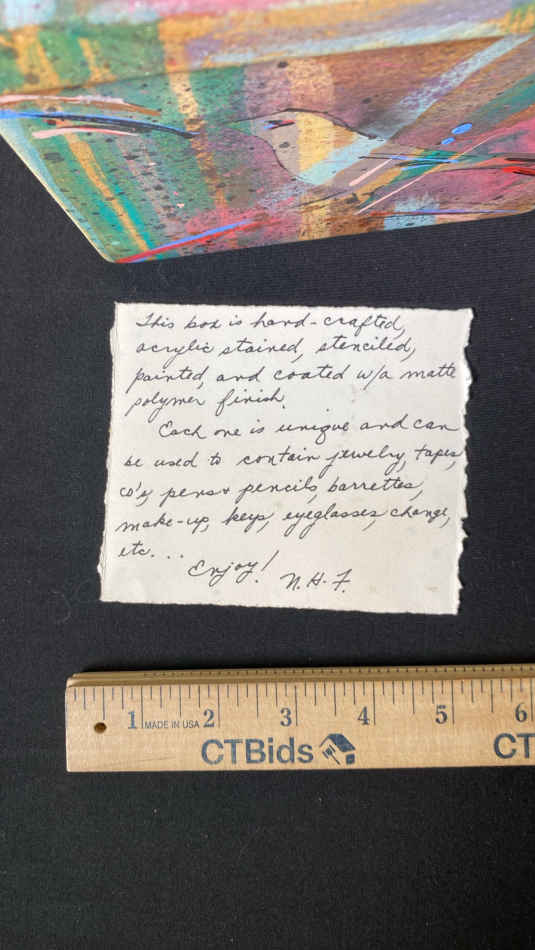 This box is hand-crafted,
acrylic stained, stenciled,
painted, and coated w/a matte
polymer finish.
Each one is unique and can
be used to contain jewelry, tapes,
CD's, pens + pencils, barrettes,
make-up, keys, eyeglasses, change,
etc...
Enjoy! N.H.F.
1 MADE IN USA 2 3 4 5 6
CTBids CT